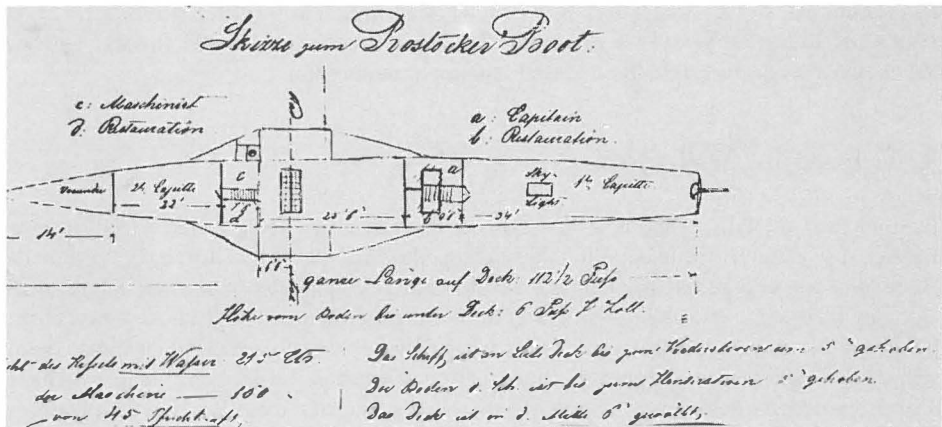 Skizze zum Rostocker Boot.
c: Maschinist
d. Restauration
a: Capitain
b: Restauration.
Vorunter
2te Cajütte
32'
c
d
a
b
Sky-
Light.
1te Cajütte
14'
34'
ganze Länge auf Deck: 112 1/2 Fuß
Höhe vom Boden bis unter Deck: 6 Fuß 7 Zoll.
des Kessels mit Wasser 215 Ctr.
der Maschine — 100
von 45 Pferdekraft,
Das Schiff, ist an Seite Deck bis zum Vordersteven um 5" gehoben.
Der Boden d. Sch. ist bis zum Hintersteven 5" gehoben.
Das Deck ist in d. Mitte 6" gewölbt,